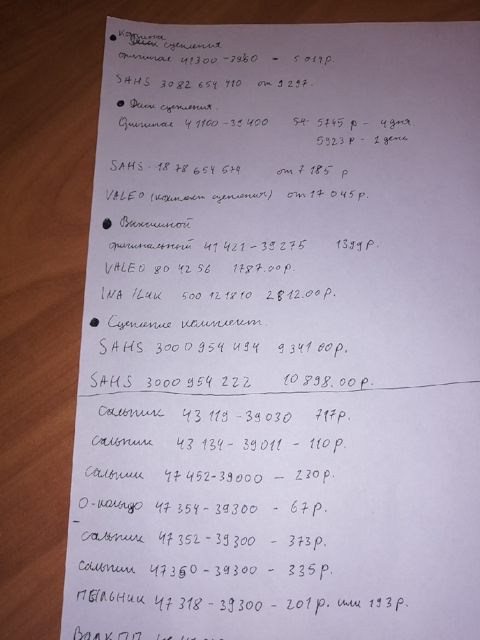 ● Корзина
Диски сцепления
оригинал 41300-3960 - 5014р.
SAHS 3082 654 410 от 9297.
● Диск сцепления.
Оригинал 41100-39400 5745 р - 4 дня.
5923 р - 1 день
SAHS. 1878 654 574 от 7185 р
VALEO (комплект сцепления) от 17 045р.
● Выжимной
оригинальный 41421-39275 1399р.
VALEO 804256 1787.00р.
INA/LUK 500 121810 2812.00р.
● Сцепление комплект.
SAHS 3000 954 494 9341 00р.
SAHS 3000 954 222 10 898.00р.
Сальник 43 119-39030 717р.
Сальник 43 134-39011 - 110р.
Сальник 47452-39000 - 230р.
О-кольцо 47354-39300 - 67р.
Сальник 47352-39300 - 373р.
Сальник 47350-39300 - 335р.
ПЫЛЬНИК 47318-39300 - 201р. или 193р.